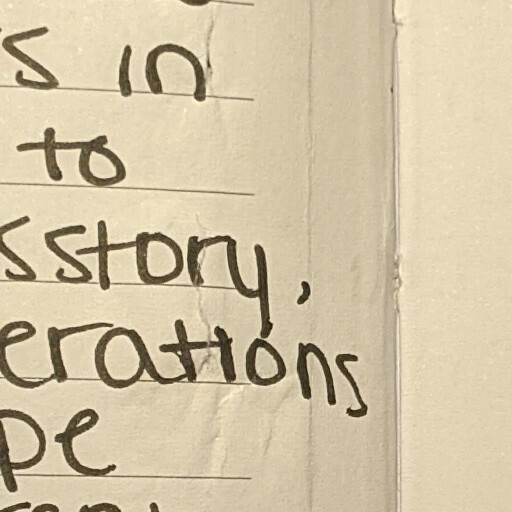 s in
to
sstory,
erations
pe